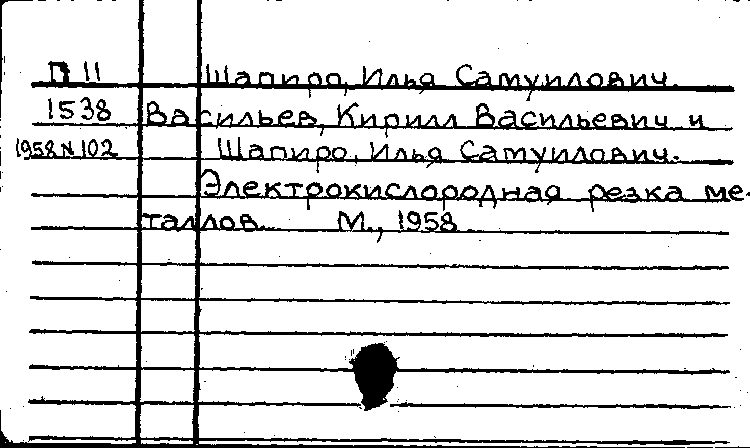 П 11 Шапиро, Илья Самуилович.
1538 Васильев, Кирилл Васильевич и
1958 N 102 Шапиро, Илья Самуилович.
Электрокислородная резка ме-
таллов. М., 1958